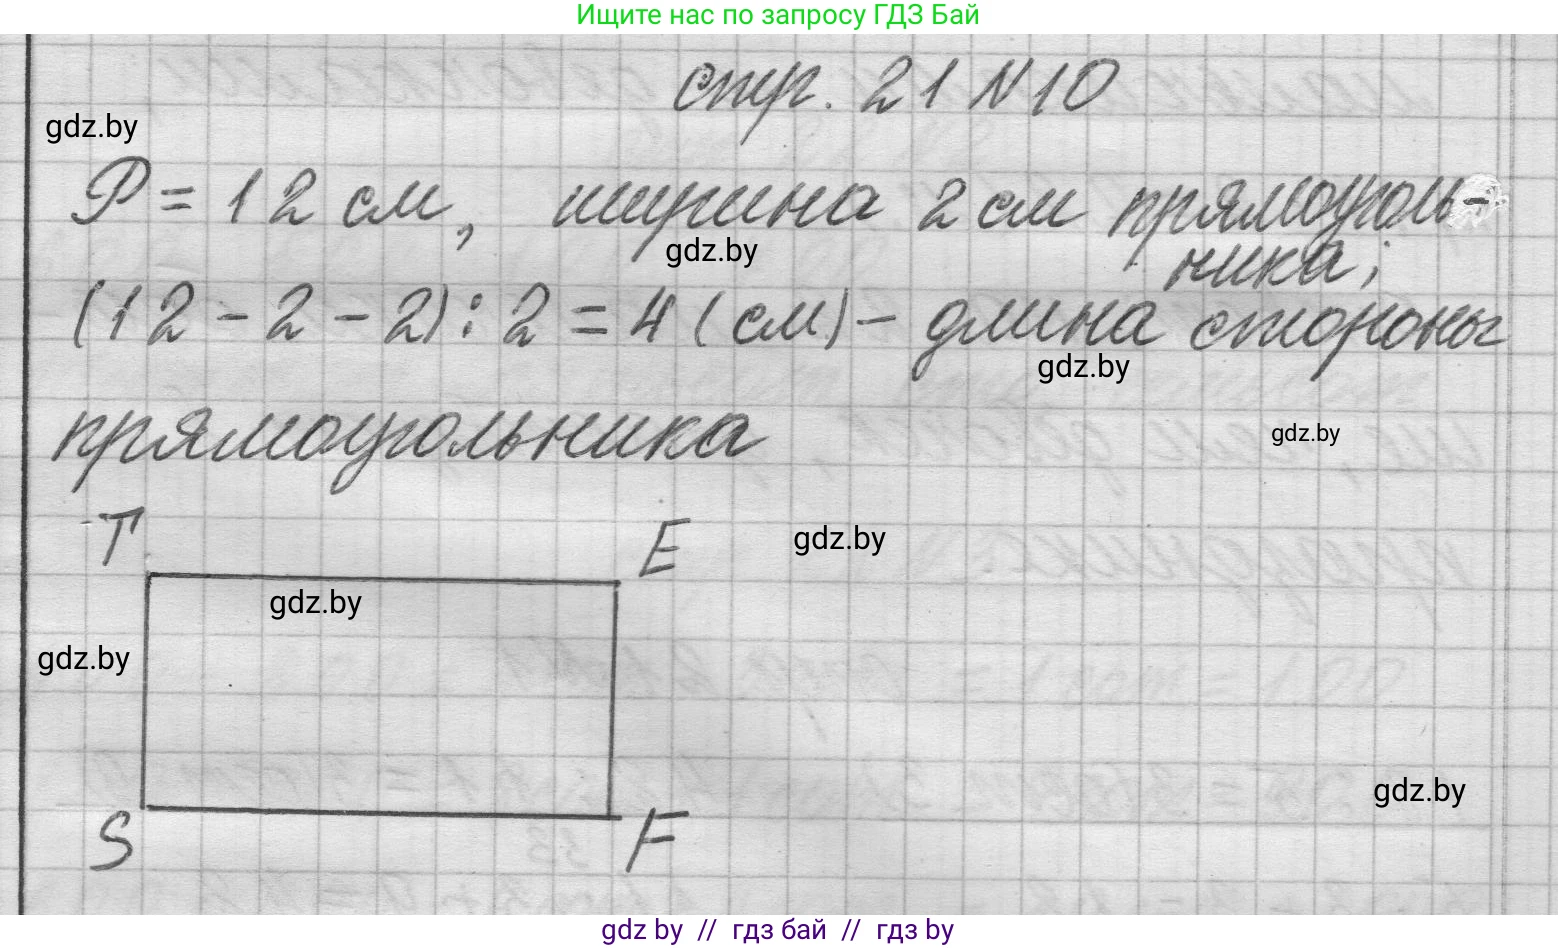 Ищите нас по запросу ГДЗ Бай
стр. 21 N 10
gdz.by
P = 12 см, ширина 2 см прямоуголь-
ника;
gdz.by
(12 - 2 - 2) : 2 = 4 (см) - длина стороны
gdz.by
прямоугольника
gdz.by
T E
gdz.by
gdz.by
gdz.by
gdz.by
S F
gdz by // гдз бай // гдз by